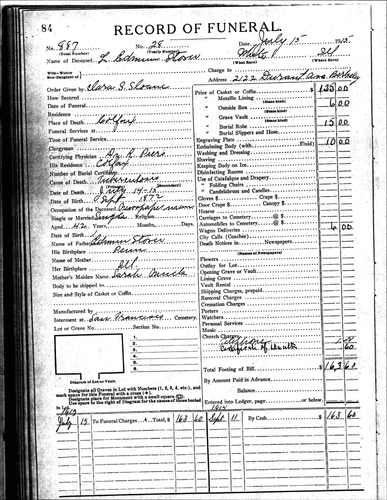 84
RECORD OF FUNERAL.
No. 887 No. 28 Date July 15 1915
(Total Number) (Yearly Number)
Name of Deceased L. Edmun Stover White
(What Race) (Where Born)
Wife—Widow
Son-Daughter of
Charge to
Address 2122 Durant Ave. Berkeley
Order Given by Clara S. Sloane
How Secured
Date of Funeral
Residence
Place of Death Colfax
Funeral Services at
Time of Funeral Service
Clergyman
Certifying Physician Dr. R. Peers
His Residence Colfax
Number of Burial Certificate
Cause of Death Tuberculosis
(Secondary)
Date of Death July 14-15
Date of Birth Sept 1872
Occupation of the Deceased Newspaper man
Single or Married Single Religion
Aged 42 Years Months, Days.
Date of Birth
Name of Father Edmun Stover
His Birthplace Penn
Name of Mother
Her Birthplace
Mother's Maiden Name Sarah
Body to be shipped to
Size and Style of Casket or Coffin
Manufactured by
Interment at San Francisco Cemetery.
Lot or Grave No. Section No.
1.
2.
3.
4.
5.
6.
Diagram of Lot or Vault.
Designate all Graves in Lot with Numbers (1, 2, 3, 4, etc.), and
mark space for this Funeral with a cross (✚)
Designate place for Monument with a small square
Use space to right of Diagram for the names of those buried
Price of Casket or Coffin $ 125 00
" Metallic Lining
(State kind)
" Outside Box 6 00
(State kind)
" Grave Vault
(State kind)
" Burial Robe 15 00
" Burial Slippers and Hose
Engraving Plate
Embalming Body (with Fluid) 10 00
Washing and Dressing
Shaving
Keeping Body on Ice
Disinfecting Rooms
Use of Catafalque and Drapery
" Folding Chairs
" Candelabrum and Candles
Gloves $ Crape $
Door Crape $ Canopy $
Hearse
Carriages to Cemetery @ $
Automobiles to Cemetery @ $
Wagon Deliveries 6 00
City Calls (Coaches)
Death Notices in Newspapers
(Names of Newspapers)
Flowers
Outlay for Lot
Opening Grave or Vault
Lining Grave
Vault Rental
Shipping Charges, prepaid
Removal Charges
Cremation Charges
Porters
Watchers
Personal Services
Music
Church Charges
Telephone
Certificate of Death 60
Total Footing of Bill $ 163 60
By Amount Paid in Advance
Balance
Entered into Ledger, page or below.
1915 1915
July 15 To Funeral Charges $ 163 60 Sept 11 By Cash $ 163 60